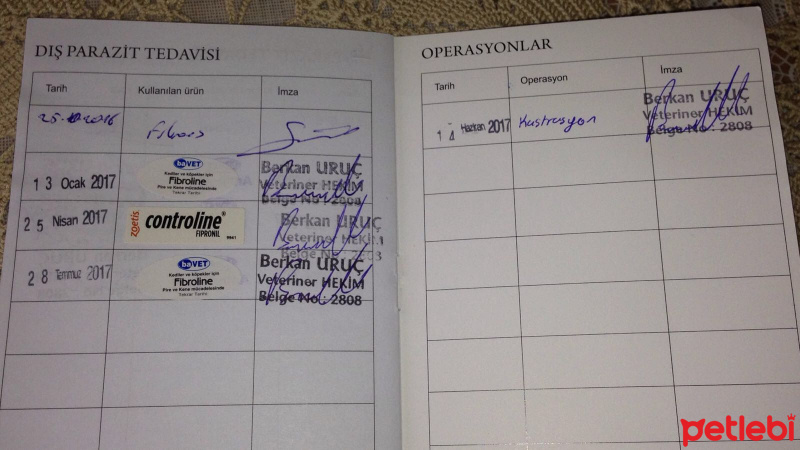 DIŞ PARAZİT TEDAVİSİ
Tarih Kullanılan ürün İmza
2016
13 Ocak 2017
baVET
Kediler ve köpekler için
Fibroline
Pire ve Kene mücadelesinde
Tekrar Tarihi:
Berkan URUÇ
Veteriner HEKİM
Belge No : 2808
25 Nisan 2017
zoetis
controline®
FIPRONIL
Berkan URUÇ
Veteriner HEKİM
Belge No
28 Temmuz 2017
baVET
Kediler ve köpekler için
Fibroline
Pire ve Kene mücadelesinde
Tekrar Tarihi:
Berkan URUÇ
Veteriner HEKİM
Belge No : 2808
OPERASYONLAR
Tarih Operasyon İmza
14 Haziran 2017 Kastrasyon
Berkan URUÇ
Veteriner HEKİM
Belge No : 2808
petlebi